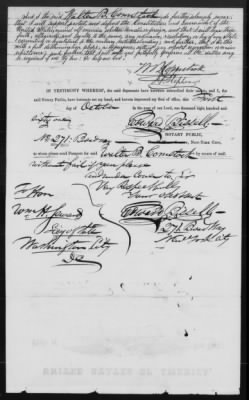 And I the said Walter B. Comstock do further solemnly swear
that I will support, protect and defend the Constitution and Government of the
United States against all enemies, whether domestic or foreign, and that I will bear true
faith, allegiance and loyalty to the same, any ordinance, resolution or law of any State
Convention or Legislature to the contrary notwithstanding; and further, that I do this
with a full determination, pledge and purpose, without any mental reservation or evasion
whatsoever; and further that I will well and faithfully perform all the duties which may
be required of me by law: So help me God:
W B Comstock
IN TESTIMONY WHEREOF, the said deponents have hereunto subscribed their names and I, the
said Notary Public, have hereunto set my hand, and have hereunto impressed my seal of office, this First
day of October in the year of our Lord, one thousand eight hundred and
sixty
Edward Bissell
NOTARY PUBLIC,
New-York City.
No 271 Broadway
to whom please send Passport for said Walter B. Comstock by return of mail,
without fail if you please
and under cover to, Sir
Very Respectfully
Your obt Servt
Edward Bissell
271 Broadway
New York City
To Hon
Wm H. Seward
Secy of State
Washington City
DC